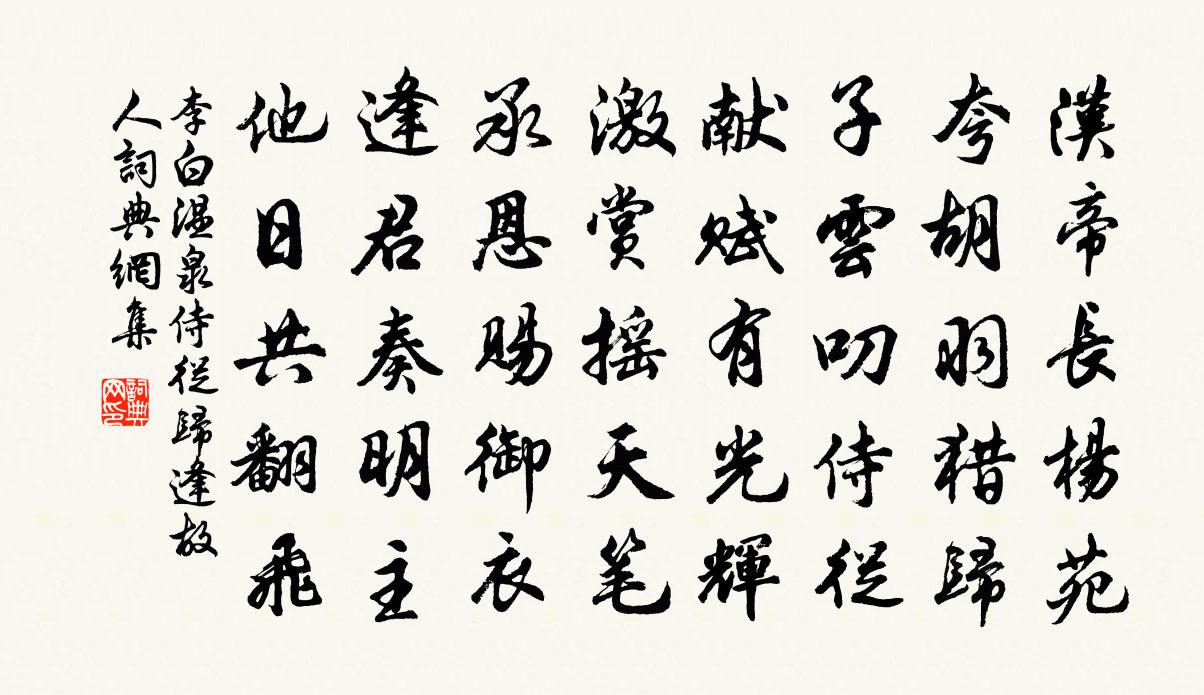 漢帝長楊苑
夸胡羽猎歸
子雲叨侍從
献赋有光輝
激赏摇天笔
承恩賜御衣
逢君奏明主
他日共翻飛
李白温泉侍從歸逢故
人詞典網集
詞典网印